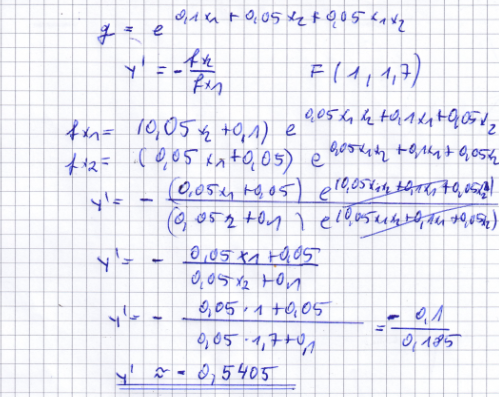 g = e^0,1x1 + 0,05x2 + 0,05x1x2
y' = - fx2/fx1 F (1, 1,7)
fx1 = (0,05x2 + 0,1) e^0,05x1x2 + 0,1x1 + 0,05x2
fx2 = (0,05x1 + 0,05) e^0,05x1x2 + 0,1x1 + 0,05x2
y' = - (0,05x1 + 0,05) e^(0,05x1x2 + 0,1x1 + 0,05x2) / (0,05x2 + 0,1) e^(0,05x1x2 + 0,1x1 + 0,05x2)
y' = - 0,05x1 + 0,05 / 0,05x2 + 0,1
y' = - 0,05·1 + 0,05 / 0,05·1,7 + 0,1 = - 0,1 / 0,185
y' ≈ - 0,5405